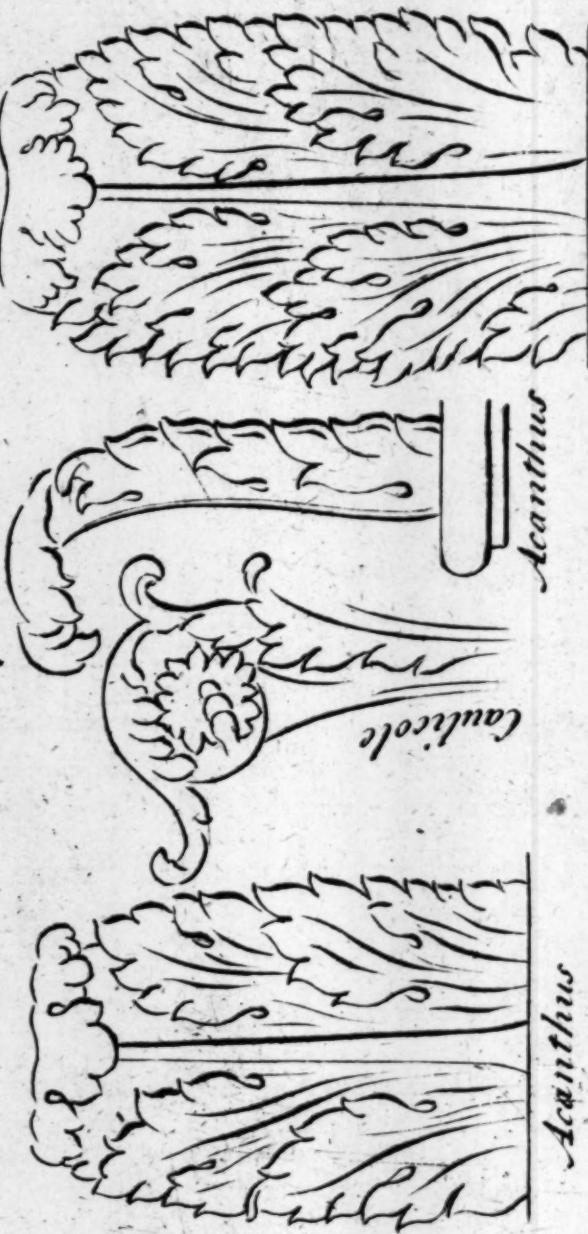 Acanthus
Caulicole
Acanthus